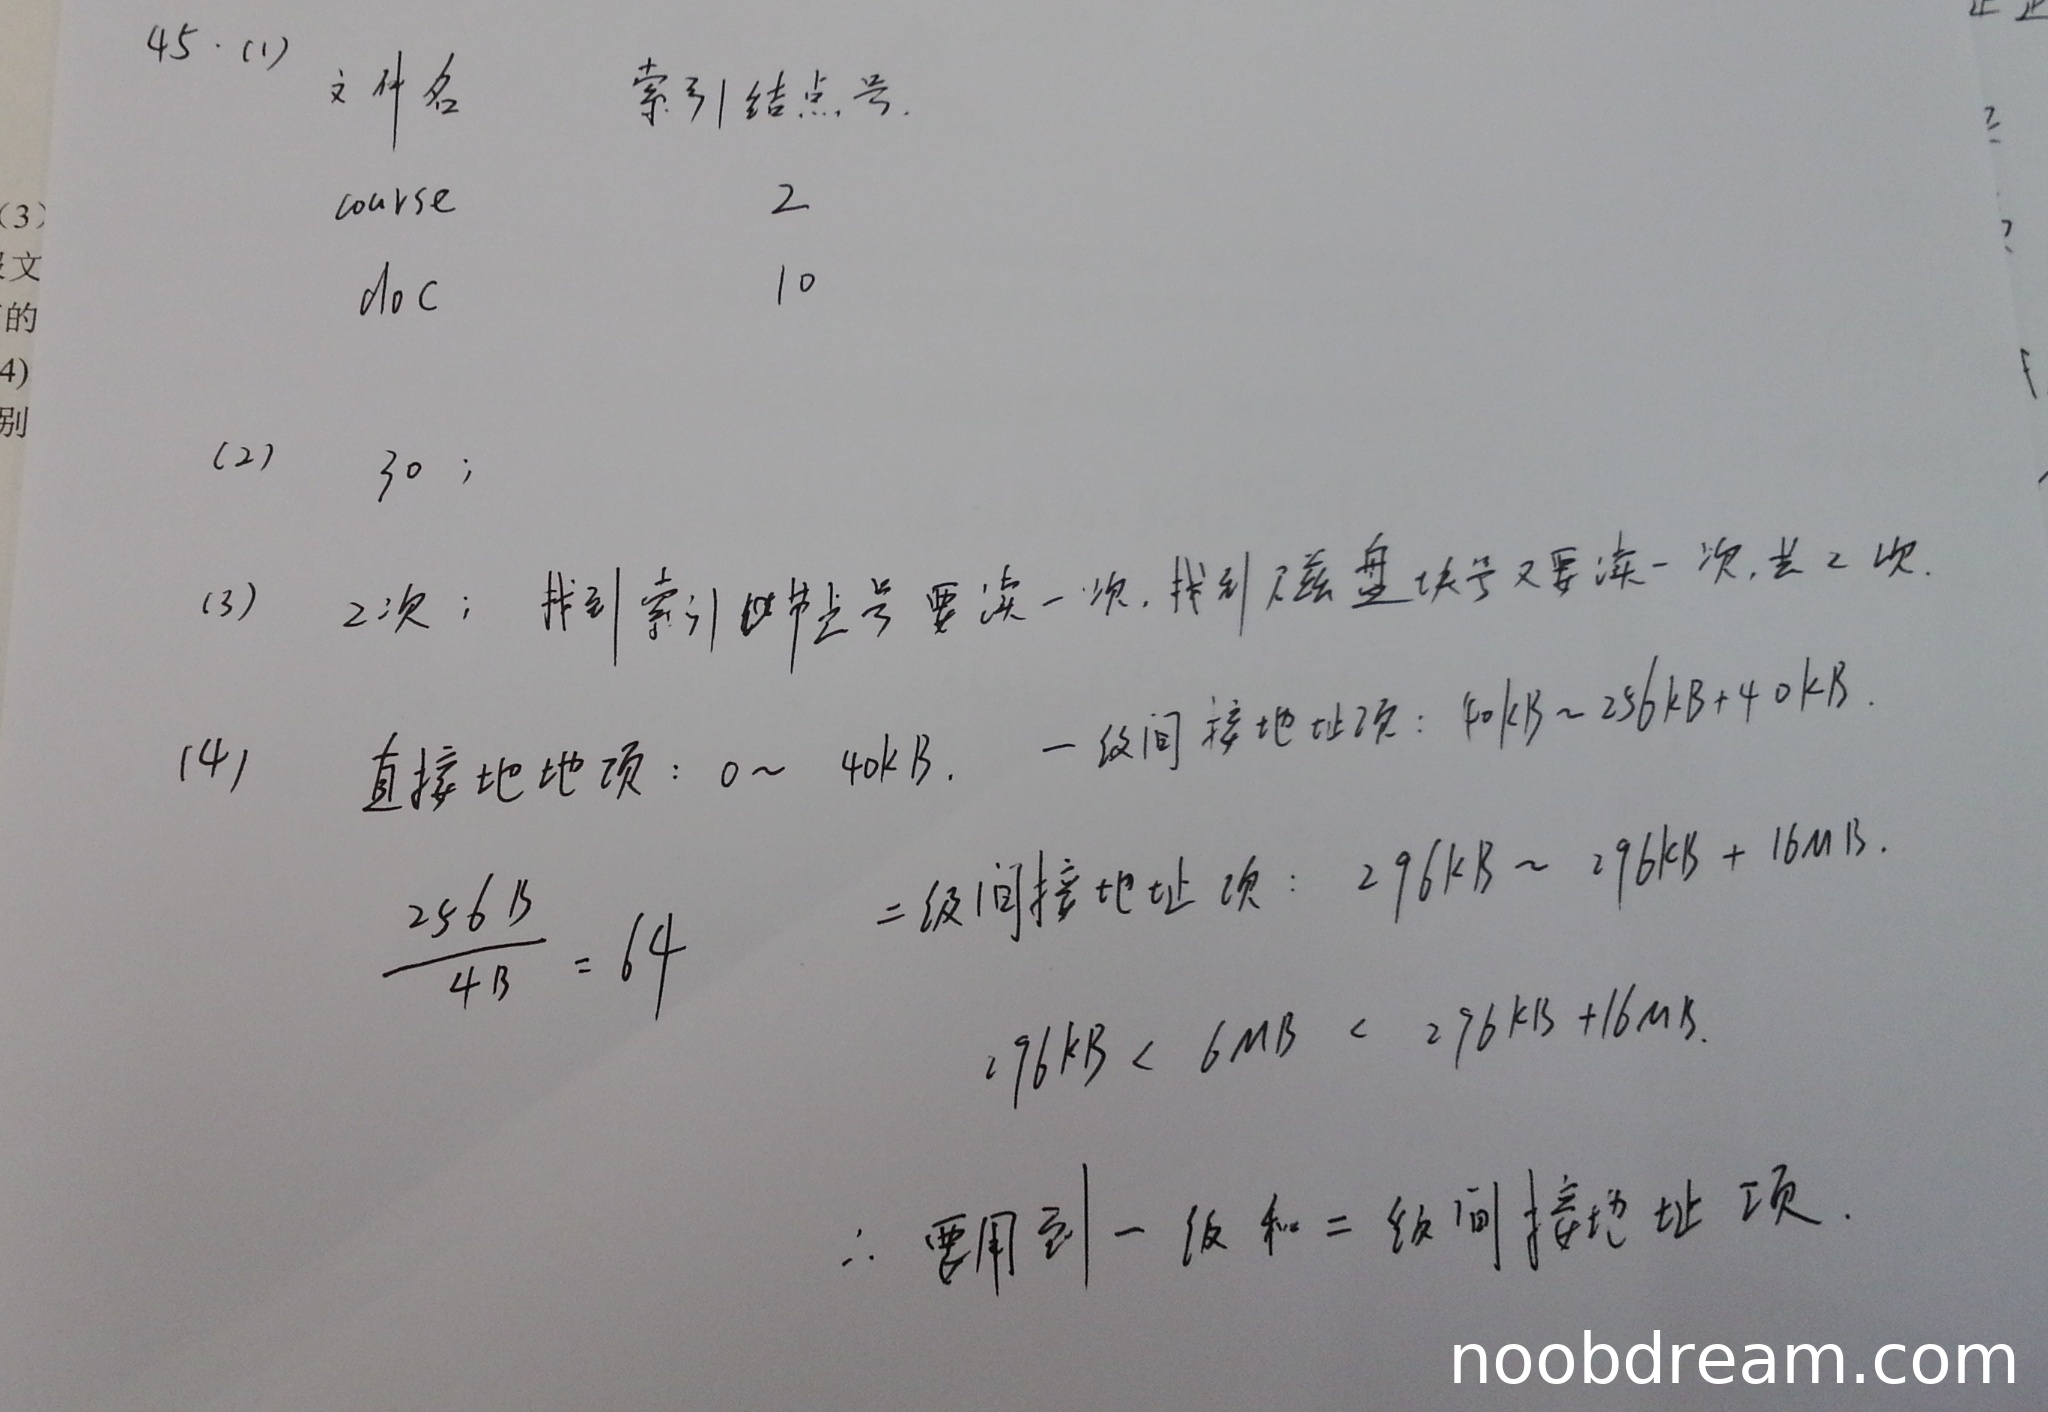 45.(1)
文件名 索引结点号.
course 2
doc 10
(2) 30;
(3) 2次; 找到索引节点号要读一次,找到磁盘块号又要读一次,共2次.
(4) 直接地地项: 0~40kB. 一级间接地址项: 40kB~256kB+40kB.
256B/4B = 64
二级间接地址项: 296kB~296kB+16MB.
296kB < 6MB < 296kB+16MB.
∴ 要用到一级和二级间接地址项.
(3)
文
的
4)
别
noobdream.com